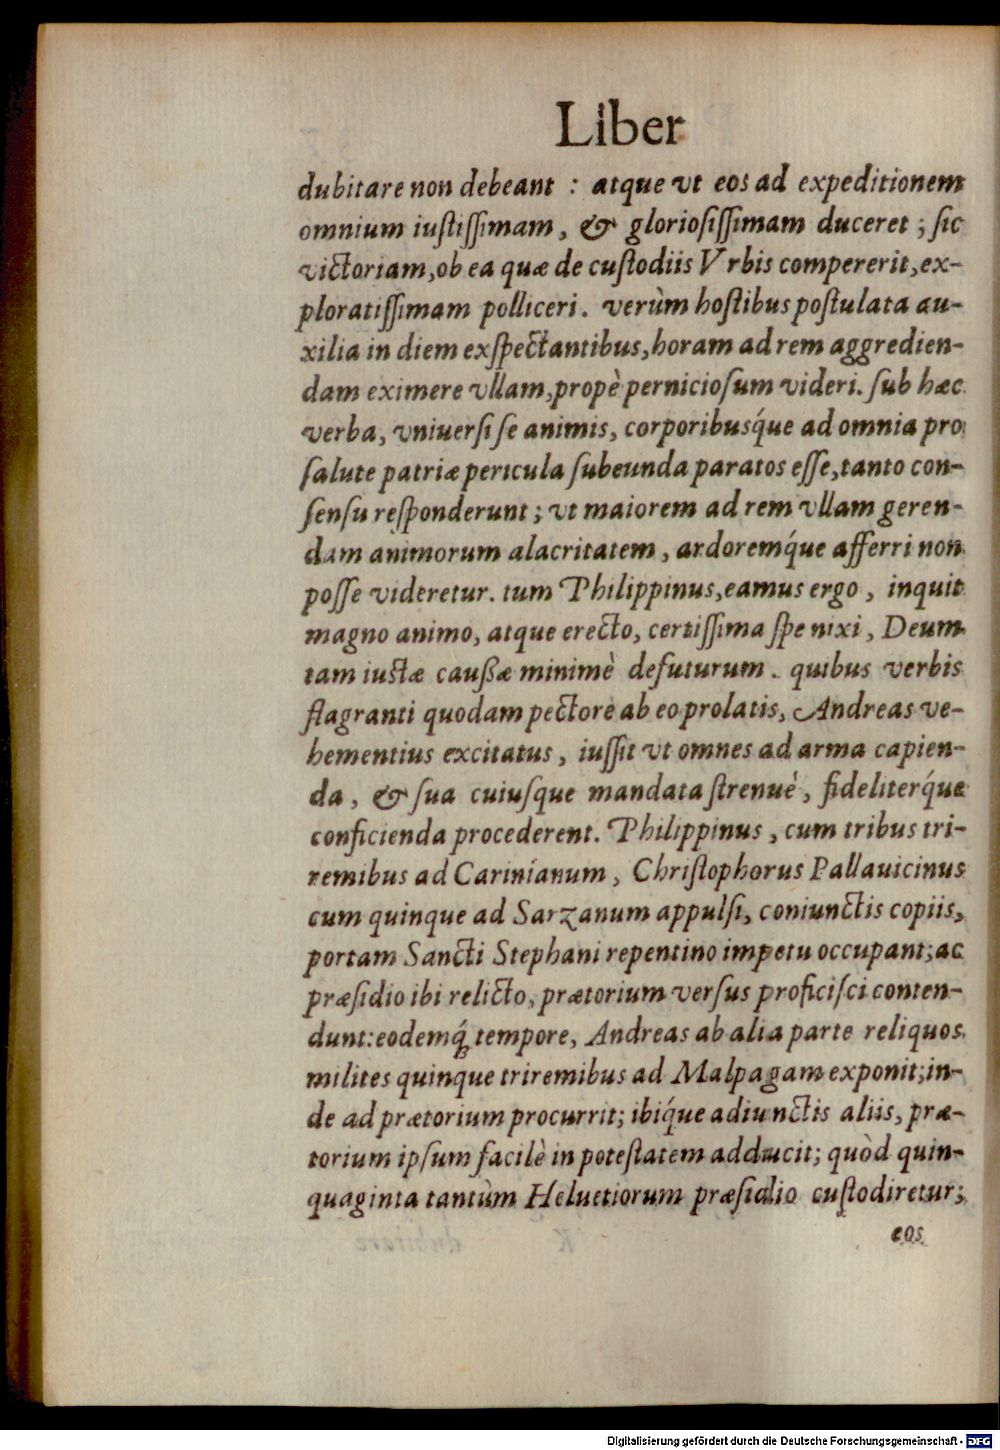 Liber
dubitare non debeant : atque vt eos ad expeditionem
omnium iuſtiſſimam, & glorioſiſſimam duceret ; ſic
victoriam, ob ea quæ de cuſtodiis Vrbis compererit, ex-
ploratiſſimam polliceri. verùm hoſtibus poſtulata au-
xilia in diem exſpectantibus, horam ad rem aggredien-
dam eximere vllam, propè pernicioſum videri. ſub hæc
verba, vniuerſi ſe animis, corporibusq́ue ad omnia pro
ſalute patriæ pericula ſubeunda paratos eſſe, tanto con-
ſenſu reſponderunt ; vt maiorem ad rem vllam geren-
dam animorum alacritatem, ardoremq́ue afferri non
poſſe videretur. tum Philippinus, eamus ergo, inquit
magno animo, atque erecto, certiſſima ſpe nixi, Deum
tam iuctæ cauſsæ minimè defuturum. quibus verbis
flagranti quodam pectore ab eo prolatis, Andreas ve-
hementius excitatus, iuſſit vt omnes ad arma capien-
da, & ſua cuiuſque mandata ſtrenuè, fideliterq́ue
conficienda procederent. Philippinus, cum tribus tri-
remibus ad Carinianum, Chriſtophorus Pallauicinus
cum quinque ad Sarzanum appulſi, coniunctis copiis,
portam Sancti Stephani repentino impetu occupant; ac
præſidio ibi relicto, prætorium verſus proficiſci conten-
dunt: eodemq́ꝫ tempore, Andreas ab alia parte reliquos
milites quinque triremibus ad Malpagam exponit; in-
de ad prætorium procurrit; ibiq́ue adiunctis aliis, præ-
torium ipſum facilè in poteſtatem adducit; quòd quin-
quaginta tantùm Heluetiorum præſidio cuſtodiretur;
eos
Digitalisierung gefördert durch die Deutsche Forschungsgemeinschaft - DFG